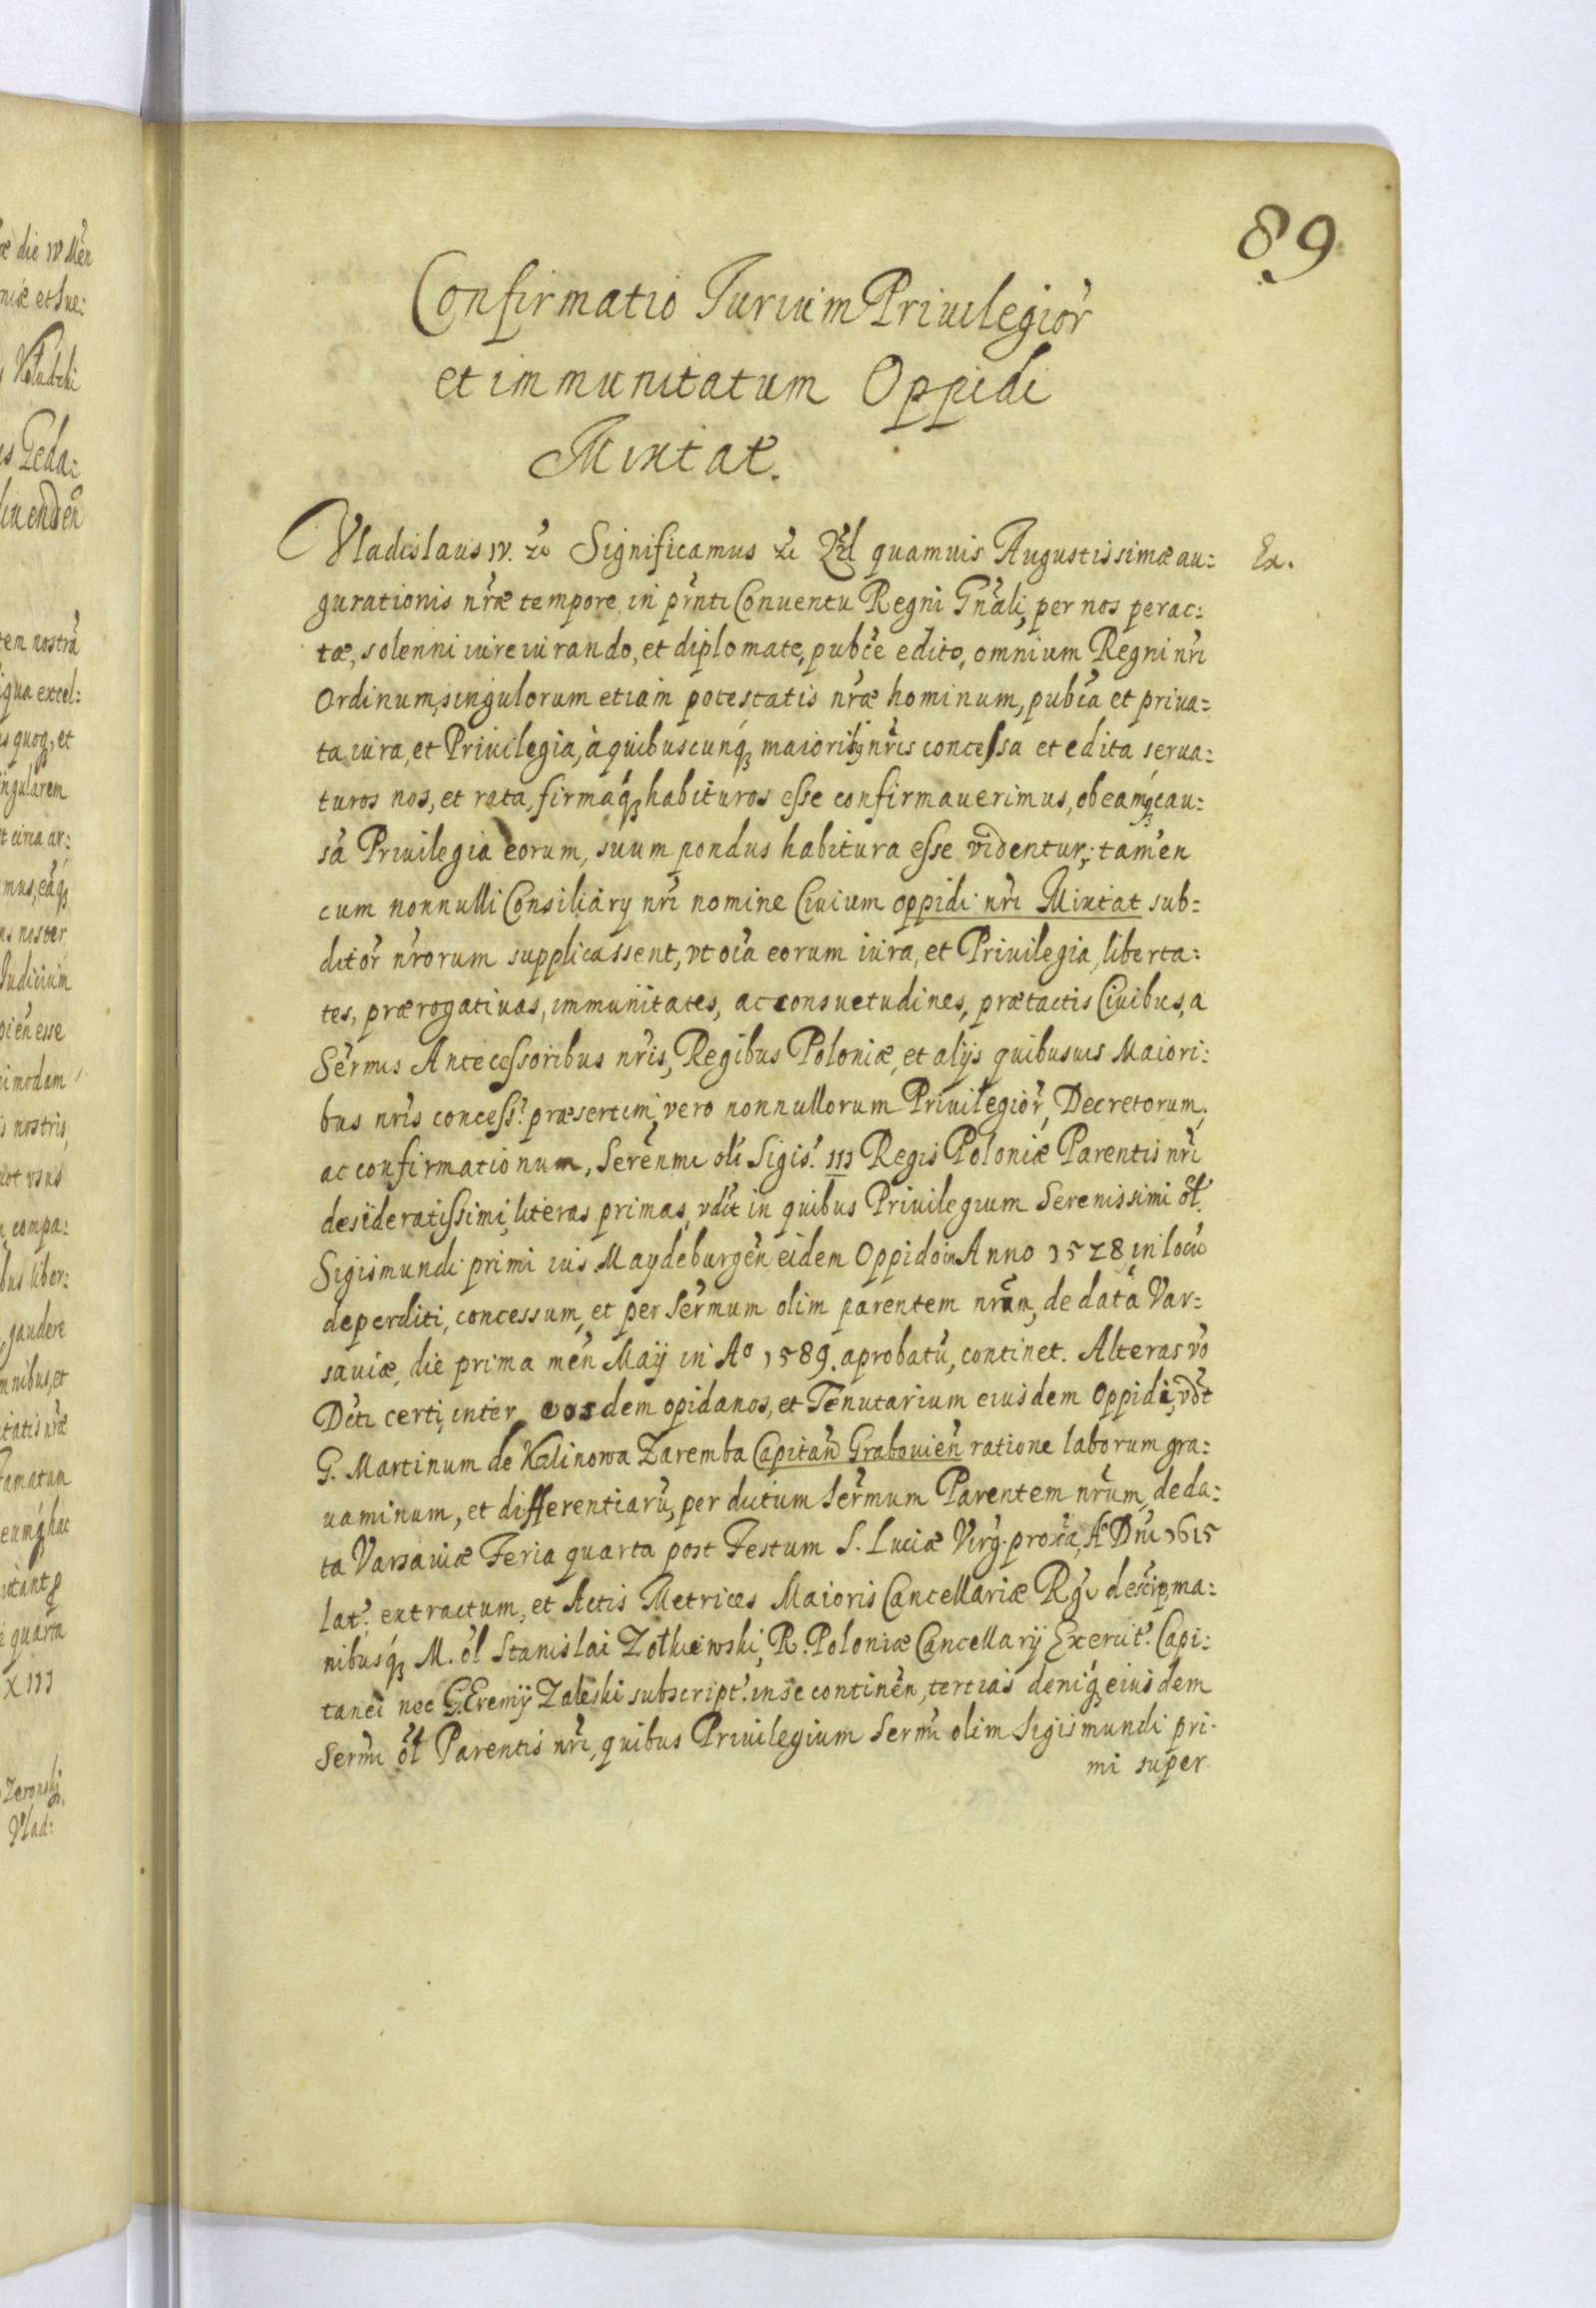 89
Confirmatio Iurium Priuilegior̃
et immunitatum Oppidi
Mixtat.
Vladislaus IV. Significamus quamuis Augustissimæ au:
Ex.
gurationis nr̃æ tempore in pr̃nti Conuentu Regni Gñali, per nos perac:
tæ, solenni iureiurando, et diplomate, pubce edito, omnium Regni nr̃i
Ordinum, singulorum etiam potestatis nr̃æ hominum, pubca et priua:
ta iura, et Priuilegia, à quibuscunq; maiorib9 nr̃is concessa et edita serua:
turos nos, et rata, firmaq; habituros esse confirmauerimus, ob eamq; cau:
sã Priuilegia eorum, suum pondus habitura esse videntur, tamen
cum nonnulli Consiliarÿ nr̃i nomine Ciuium oppidi nr̃i Mixtat sub=
ditor̃ nr̃orum supplicassent, vt oĩa eorum iura, et Priuilegia, liberta:
tes, prærogatiuas, immunitates, ac consuetudines, prætactis Ciuibus, a
Serm̃is Antecessoribus nr̃is, Regibus Poloniæ, et alÿs quibusuis Maiori:
bus nr̃is concess. præsertim vero nonnullorum Priuilegior̃, Decretorum,
ac confirmationum, Serenm̃i oli Sigis. III Regis Poloniæ Parentis nr̃i
desideratissimi, literas primas, vdt in quibus Priuilegium Serenissimi ol.
Sigismundi primi iuis Maydeburgeñ eidem Oppido in Anno 1528 in locũ
deperditi, concessum, et per Serm̃um olim parentem nr̃um, de data Var=
sauiæ, die prima meñ Maÿ in Aº 1589. aprobatũ, continet. Alteras vo
Dcti certi, inter eosdem opidanos, et Tenutarium eiusdem Oppidi, vdt
G. Martinum de Kalinowa Zaremba Capitañ Grabouieñ ratione laborum gra:
uaminum, et differentiarũ, per dictum Serm̃um Parentem nr̃um, de da:
ta Varsauiæ Feria quarta post Festum S. Luciæ Virg. proxa, Aº Dñi 1615
lat. extractum, et Actis Metrices Maioris Cancellariæ Rg̃i descrip, ma:
nibusq; M. ol Stanislai Zołkiewski, R. Poloniæ Cancellarÿ Exercit. Capi:
tanei nec G. Eremÿ Zaleski subscript. in se contineñ, tertias deniq; eiusdem
Serm̃i ol Parentis nr̃i, quibus Priuilegium Serm̃i olim Sigismundi pri-
mi super